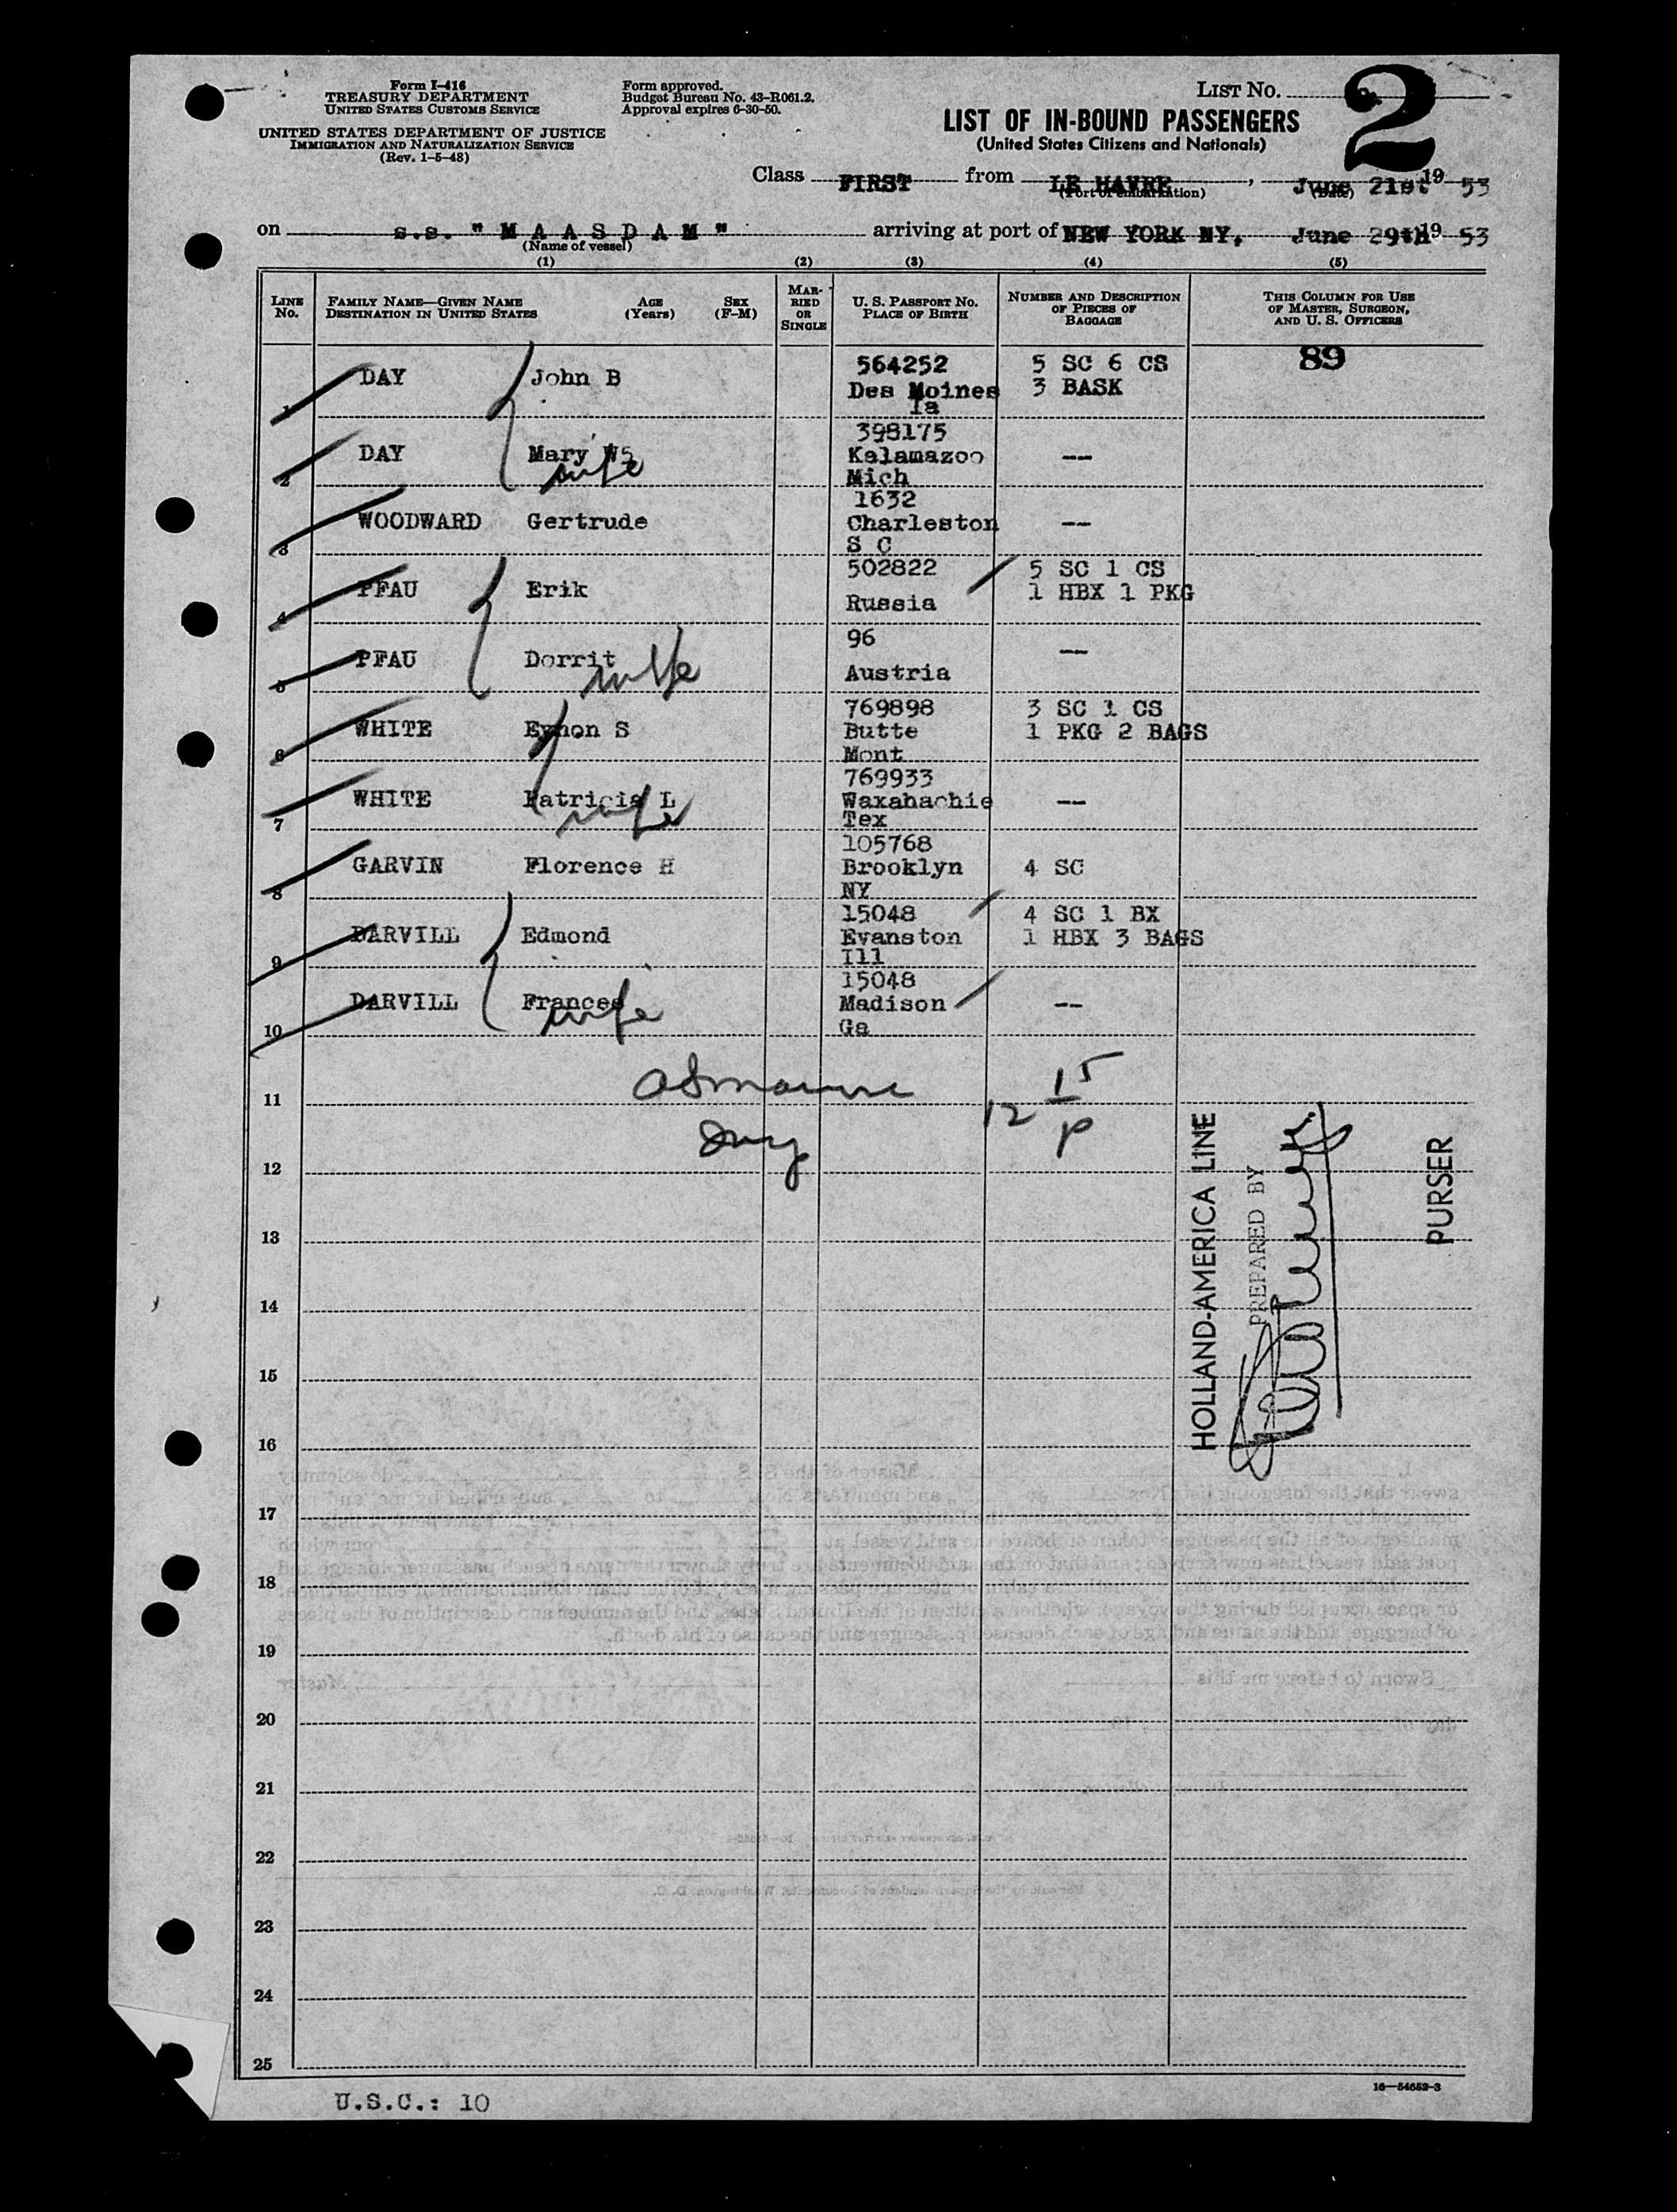 Form I-416
TREASURY DEPARTMENT
UNITED STATES CUSTOMS SERVICE
UNITED STATES DEPARTMENT OF JUSTICE
IMMIGRATION AND NATURALIZATION SERVICE
(Rev. 1-5-48)
Form approved.
Budget Bureau No. 43-R061.2.
Approval expires 6-30-50.
LIST No. 2
LIST OF IN-BOUND PASSENGERS
(United States Citizens and Nationals)
Class FIRST from LE HAVRE, June 21st 19 53
(Port of embarkation) (Date)
on s.s. " M A A S D A M " arriving at port of NEW YORK NY, June 29th 19 53
(Name of vessel)
(1) (2) (3) (4) (5)
LINE No.
FAMILY NAME—GIVEN NAME AGE (Years) SEX (F-M)
DESTINATION IN UNITED STATES
MARRIED OR SINGLE
U. S. PASSPORT No.
PLACE OF BIRTH
NUMBER AND DESCRIPTION OF PIECES OF BAGGAGE
THIS COLUMN FOR USE OF MASTER, SURGEON, AND U. S. OFFICERS
89
1 DAY John B 564252 5 SC 6 CS
Des Moines 3 BASK
Ia
2 DAY Mary WS 398175
wife Kalamazoo --
Mich
3 WOODWARD Gertrude 1632
Charleston --
S C
4 PFAU Erik 502822 5 SC 1 CS
Russia 1 HBX 1 PKG
5 PFAU Dorrit 96 --
wife Austria
6 WHITE Eynon S 769898 3 SC 1 CS
Butte 1 PKG 2 BAGS
Mont
7 WHITE Patricia L 769933
wife Waxahachie --
Tex
8 GARVIN Florence H 105768
Brooklyn 4 SC
NY
9 DARVILL Edmond 15048 4 SC 1 BX
Evanston 1 HBX 3 BAGS
Ill
10 DARVILL Frances 15048
wife Madison --
Ga
11
12 15 p
12
13
14
15
16
17
18
19
20
21
22
23
24
25
HOLLAND-AMERICA LINE
PREPARED BY
PURSER
16—54652-3
U.S.C.: 10